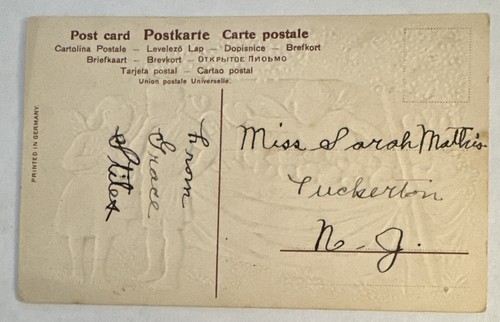 Post card Postkarte Carte postale
Cartolina Postale – Levelező Lap – Dopisnice – Brefkort
Briefkaart – Brevkort – Открытое Письмо
Tarjeta postal – Cartao postal
Union postale Universelle.
PRINTED IN GERMANY.
From
Grace
Stiles
Miss Sarah Mathis
Tuckerton
N. J.